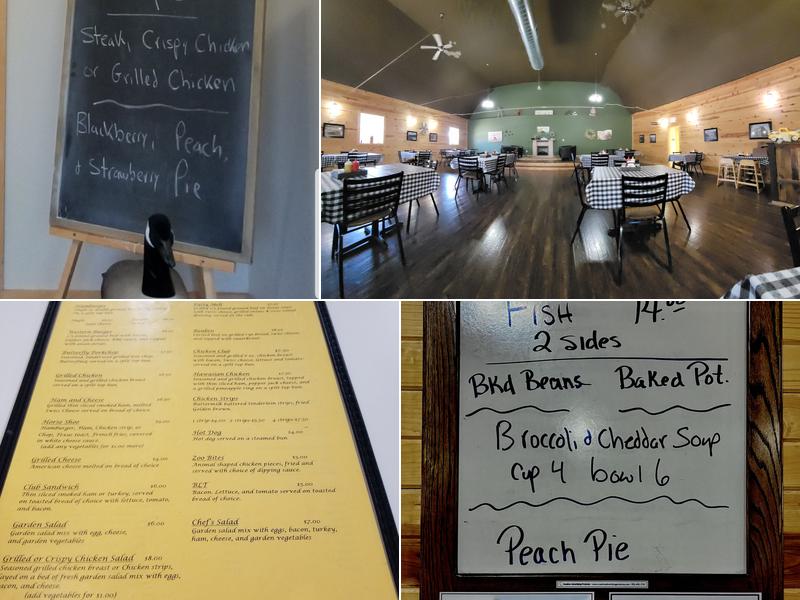 Steak, Crispy Chicken
or Grilled Chicken
Blackberry, Peach,
+ Strawberry Pie
Hamburger
Western Burger
Butterfly Porkchop
Grilled Chicken
Seasoned and grilled chicken breast
served on a split top bun.
Ham and Cheese
Grilled thin sliced smoked ham, melted
Swiss Cheese served on bread of choice.
Horse Shoe
Hamburger, Ham, Chicken strip, or
Chop, Texas toast, French fries, covered
in white cheese sauce.
(add any vegetables for $1.00 more)
Grilled Cheese
American cheese melted on bread of choice
Club Sandwich $6.00
Thin sliced smoked ham or turkey, served
on toasted bread of choice with lettuce, tomato,
and bacon.
Garden Salad $6.00
Garden salad mix with egg, cheese,
and garden vegetables
Grilled or Crispy Chicken Salad $8.00
Seasoned grilled chicken breast or Chicken strips,
layed on a bed of fresh garden salad mix with eggs,
bacon, and cheese.
(add vegetables for $1.00)
Patty Melt
Reuben
Chicken Club
Seasoned and grilled chicken breast
with bacon, Swiss cheese, lettuce and tomato
served on a split top bun.
Hawaiian Chicken
Seasoned and grilled chicken breast, topped
with thin sliced ham, pepper jack cheese, and
a grilled pineapple ring on a split top bun.
Chicken Strips
Buttermilk battered tenderloin strips, fried
Golden brown.
Hot Dog
Hot dog served on a steamed bun.
Zoo Bites $5.00
Animal shaped chicken pieces, fried and
served with choice of dipping sauce.
BLT $5.00
Bacon, Lettuce, and tomato served on toasted
bread of choice.
Chef's Salad $7.00
Garden salad mix with eggs, bacon, turkey,
ham, cheese, and garden vegetables
FISH 14.00
2 Sides
BKd Beans Baked Pot.
Broccoli & Cheddar Soup
Cup 4 bowl 6
Peach Pie